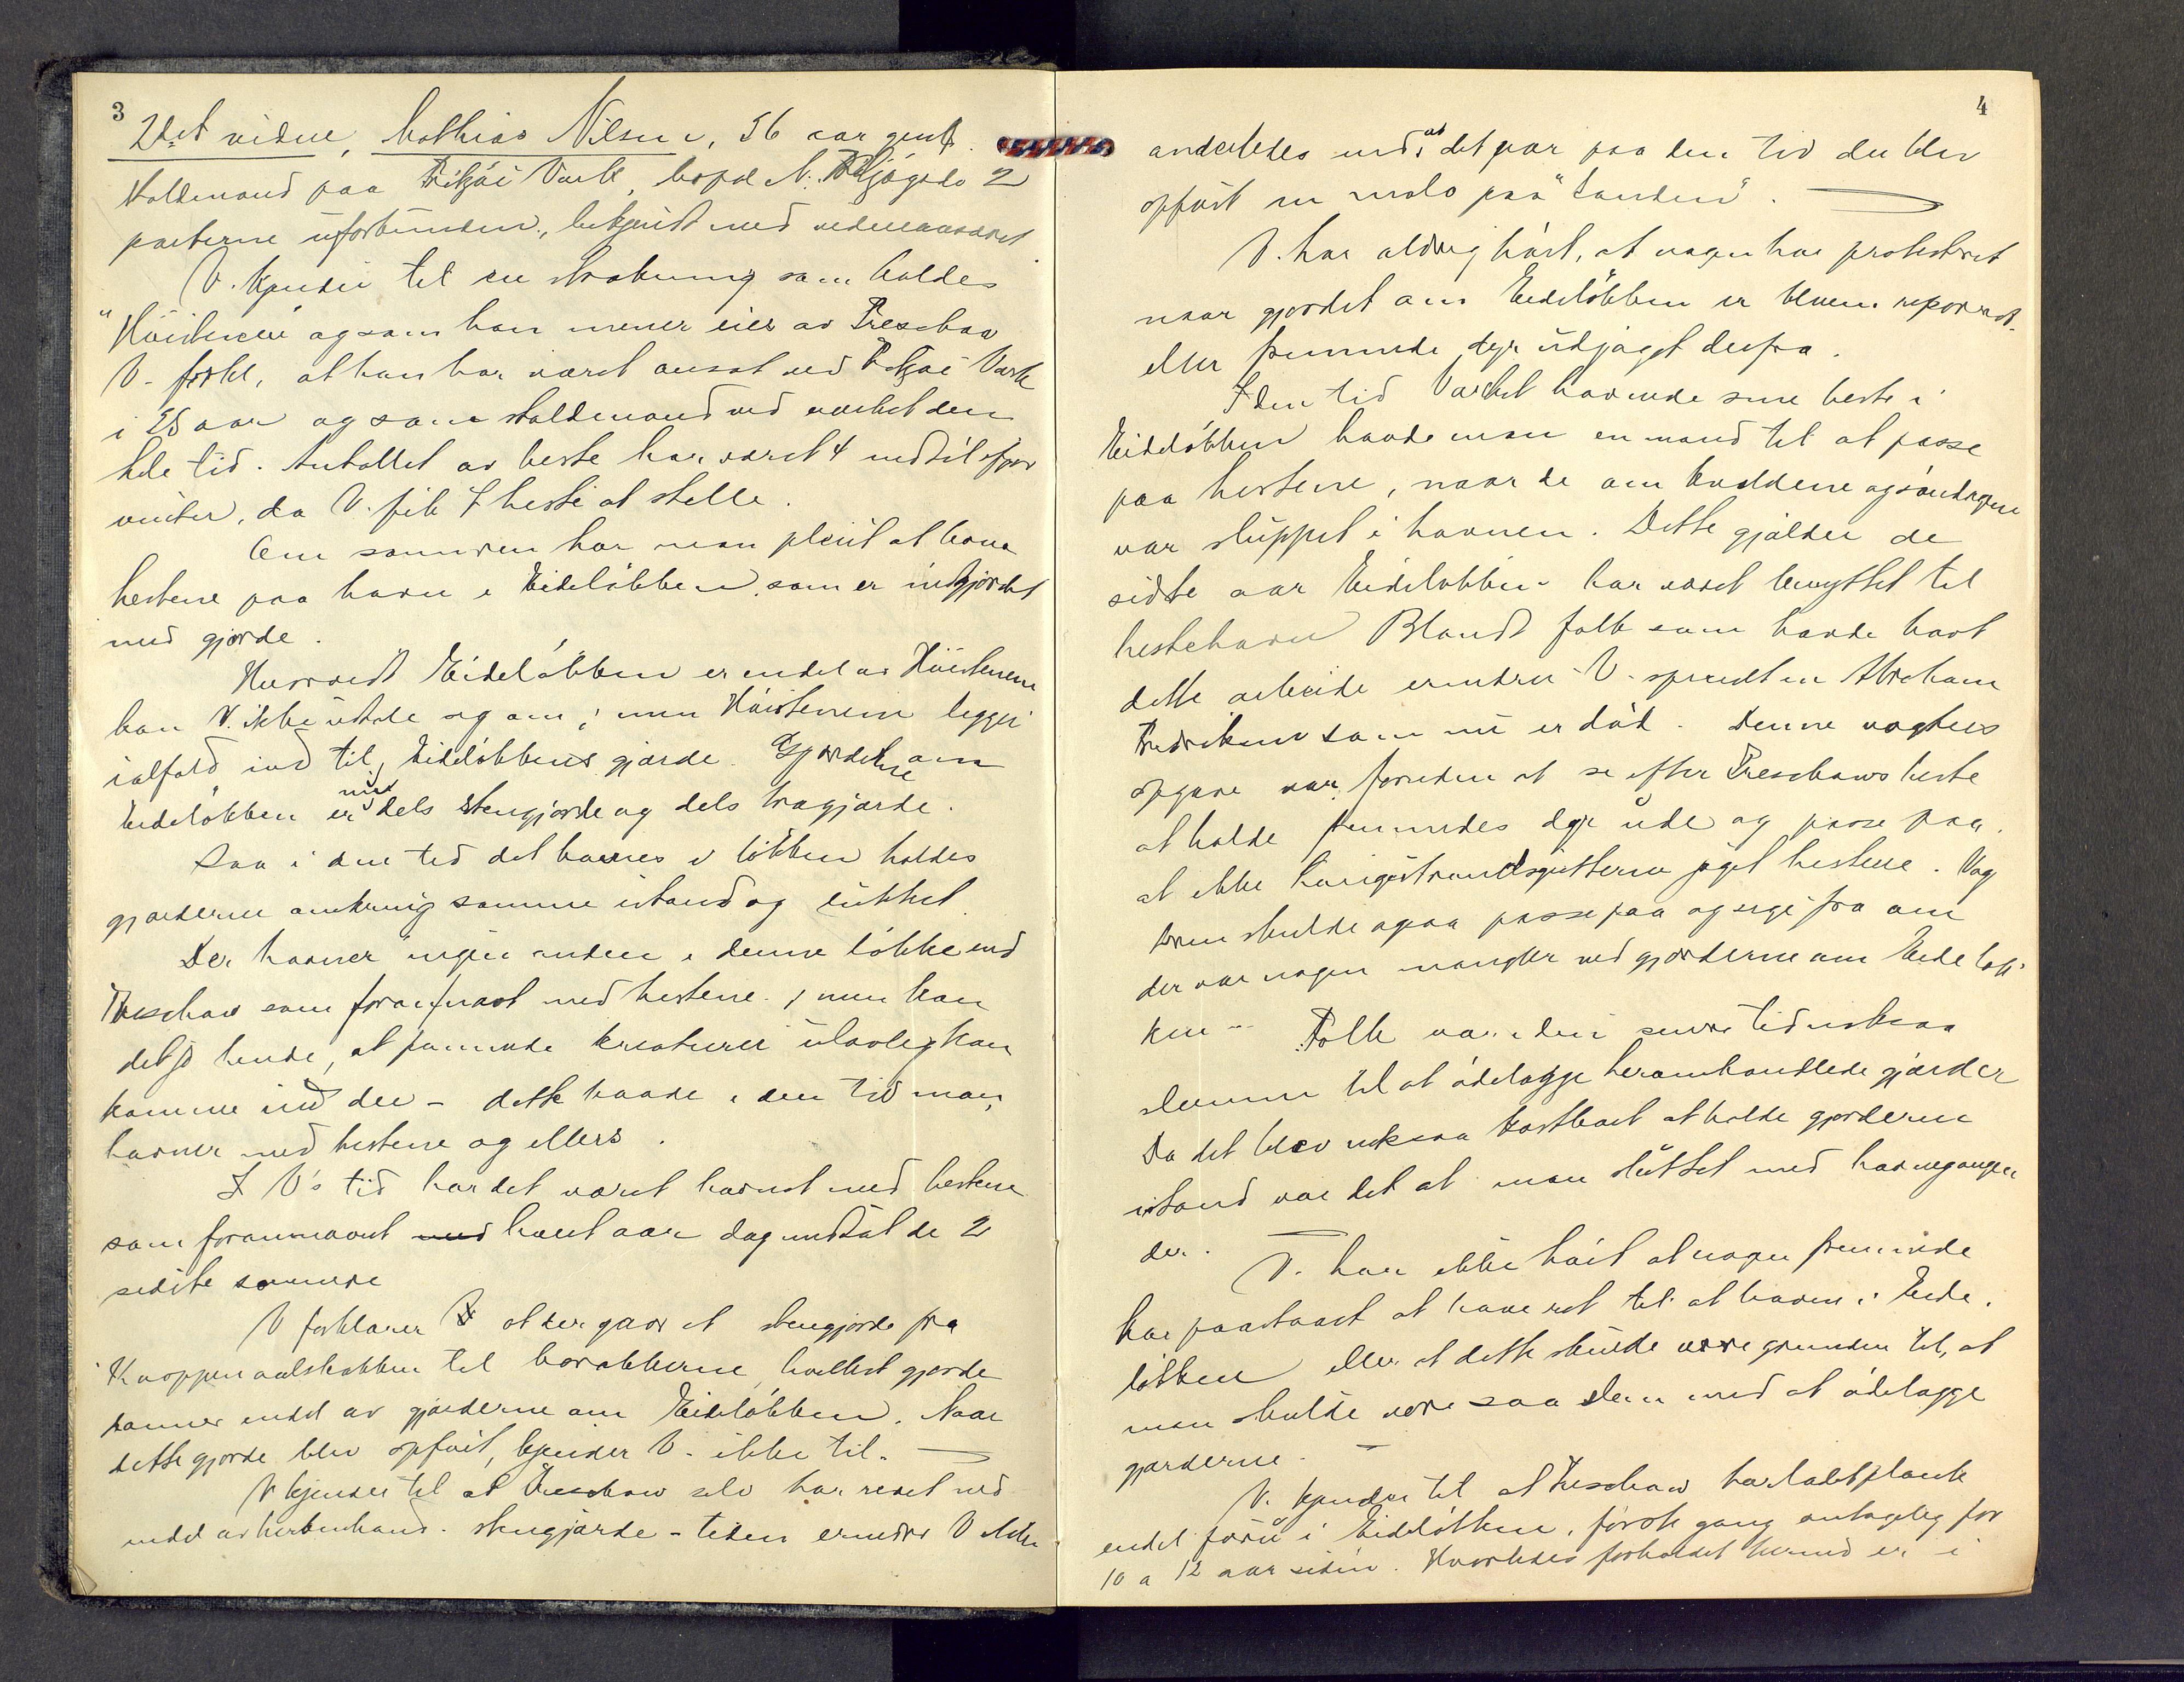 3
2det vidne, Mathias Nilsen, 56 aar gml.
staldmand paa Fritzøe Værk, bopæl N. 2
parterne uforbunden, bekjendt med vidneansvaret
V. kjender til en strækning som kaldes
"Høistenene" og som han mener eies av Treschow
V. forkl, at han har været ansat ved Fritzøe Værk
i 25 aar og som staldmand ved værket den
hele tid. Antallet av heste har været 4 indtil ifjor
vinter, da V. fik 7 heste at stelle.
Om sommeren har man pleiet at have
hestene paa havn i Eideløkken som er indgjærdet
med gjærde.
Hvorvidt Eideløkken er endel av Høistenene
kan V. ikke uttale sig om; men Høistenene ligger
ialfald ind til Eideløkkens gjærde. Gjærdene om
Eideløkken er nu dels stengjærde og dels trægjærde.
Saa i den tid det havnes i løkken holdes
gjærderne omkring samme istand og lukket.
Der havner ingen anden i denne løkke end
Treschow som foranført med hestene, men kan
det jo hende, at fremmede kreaturer ulovlig kan
komme ind der - dette baade i den tid man
havner med hestene og ellers.
I V's tid har det været havnet med hestene
som forannævnt hvert aar dog undtat de 2
sidste sommere
V forklarer at der gaar et stengjærde fra
til barakkerne, hvilket gjærde
danner endel av gjærderne om Eideløkken. Naar
dette gjærde blev opført, kjender V. ikke til.
V kjender til at Treschow selv har reist ned
endel av heromhand. stengjærde - tiden erindrer V ikke
4
anderledes end at det var paa den tid der blev
opført en molo paa "Tanden".
V. har aldrig hørt, at nogen har protesteret
naar gjærdet om Eideløkken er blevet reparert
eller fremmede dyr utjaget derfra.
I den tid Værket havnede sine heste i
Eideløkken havde man en mand til at passe
paa hestene, naar de om kveldene og søndagene
var sluppet i havnen. Dette gjælder de
sidste aar Eideløkken har været benyttet til
hestehavn. Blandt folk som havde havt
dette arbeide erindrer V. specielt en Abraham
Fredriksen som nu er død. Denne vogters
opgave var, foruden at se efter Treschows heste
at holde fremmedes dyr ude og passe paa
at ikke Langestrandsgutterne jaget hestene. Vog
teren skulde ogsaa passe paa og sige fra om
der var nogen mangler ved gjærderne om Eideløk
ken - Folk var i den senere tid noksaa
slemme til at ødelægge heromhandlede gjærder
Da det blev noksaa kostbart at holde gjærderne
istand var det at man sluttet med havnegangen
der.
V. har ikke hørt at nogen fremmede
har paastaaet at have ret til at havne i Eide
løkken eller at dette skulde være grunden til, at
man skulde være saa slem med at ødelægge
gjærderne.
V. kjender til at Treschow har latt plante
endel furu i Eideløkken, første gang antagelig for
10 a 12 aar siden. Hvorledes forholdet hermed er i